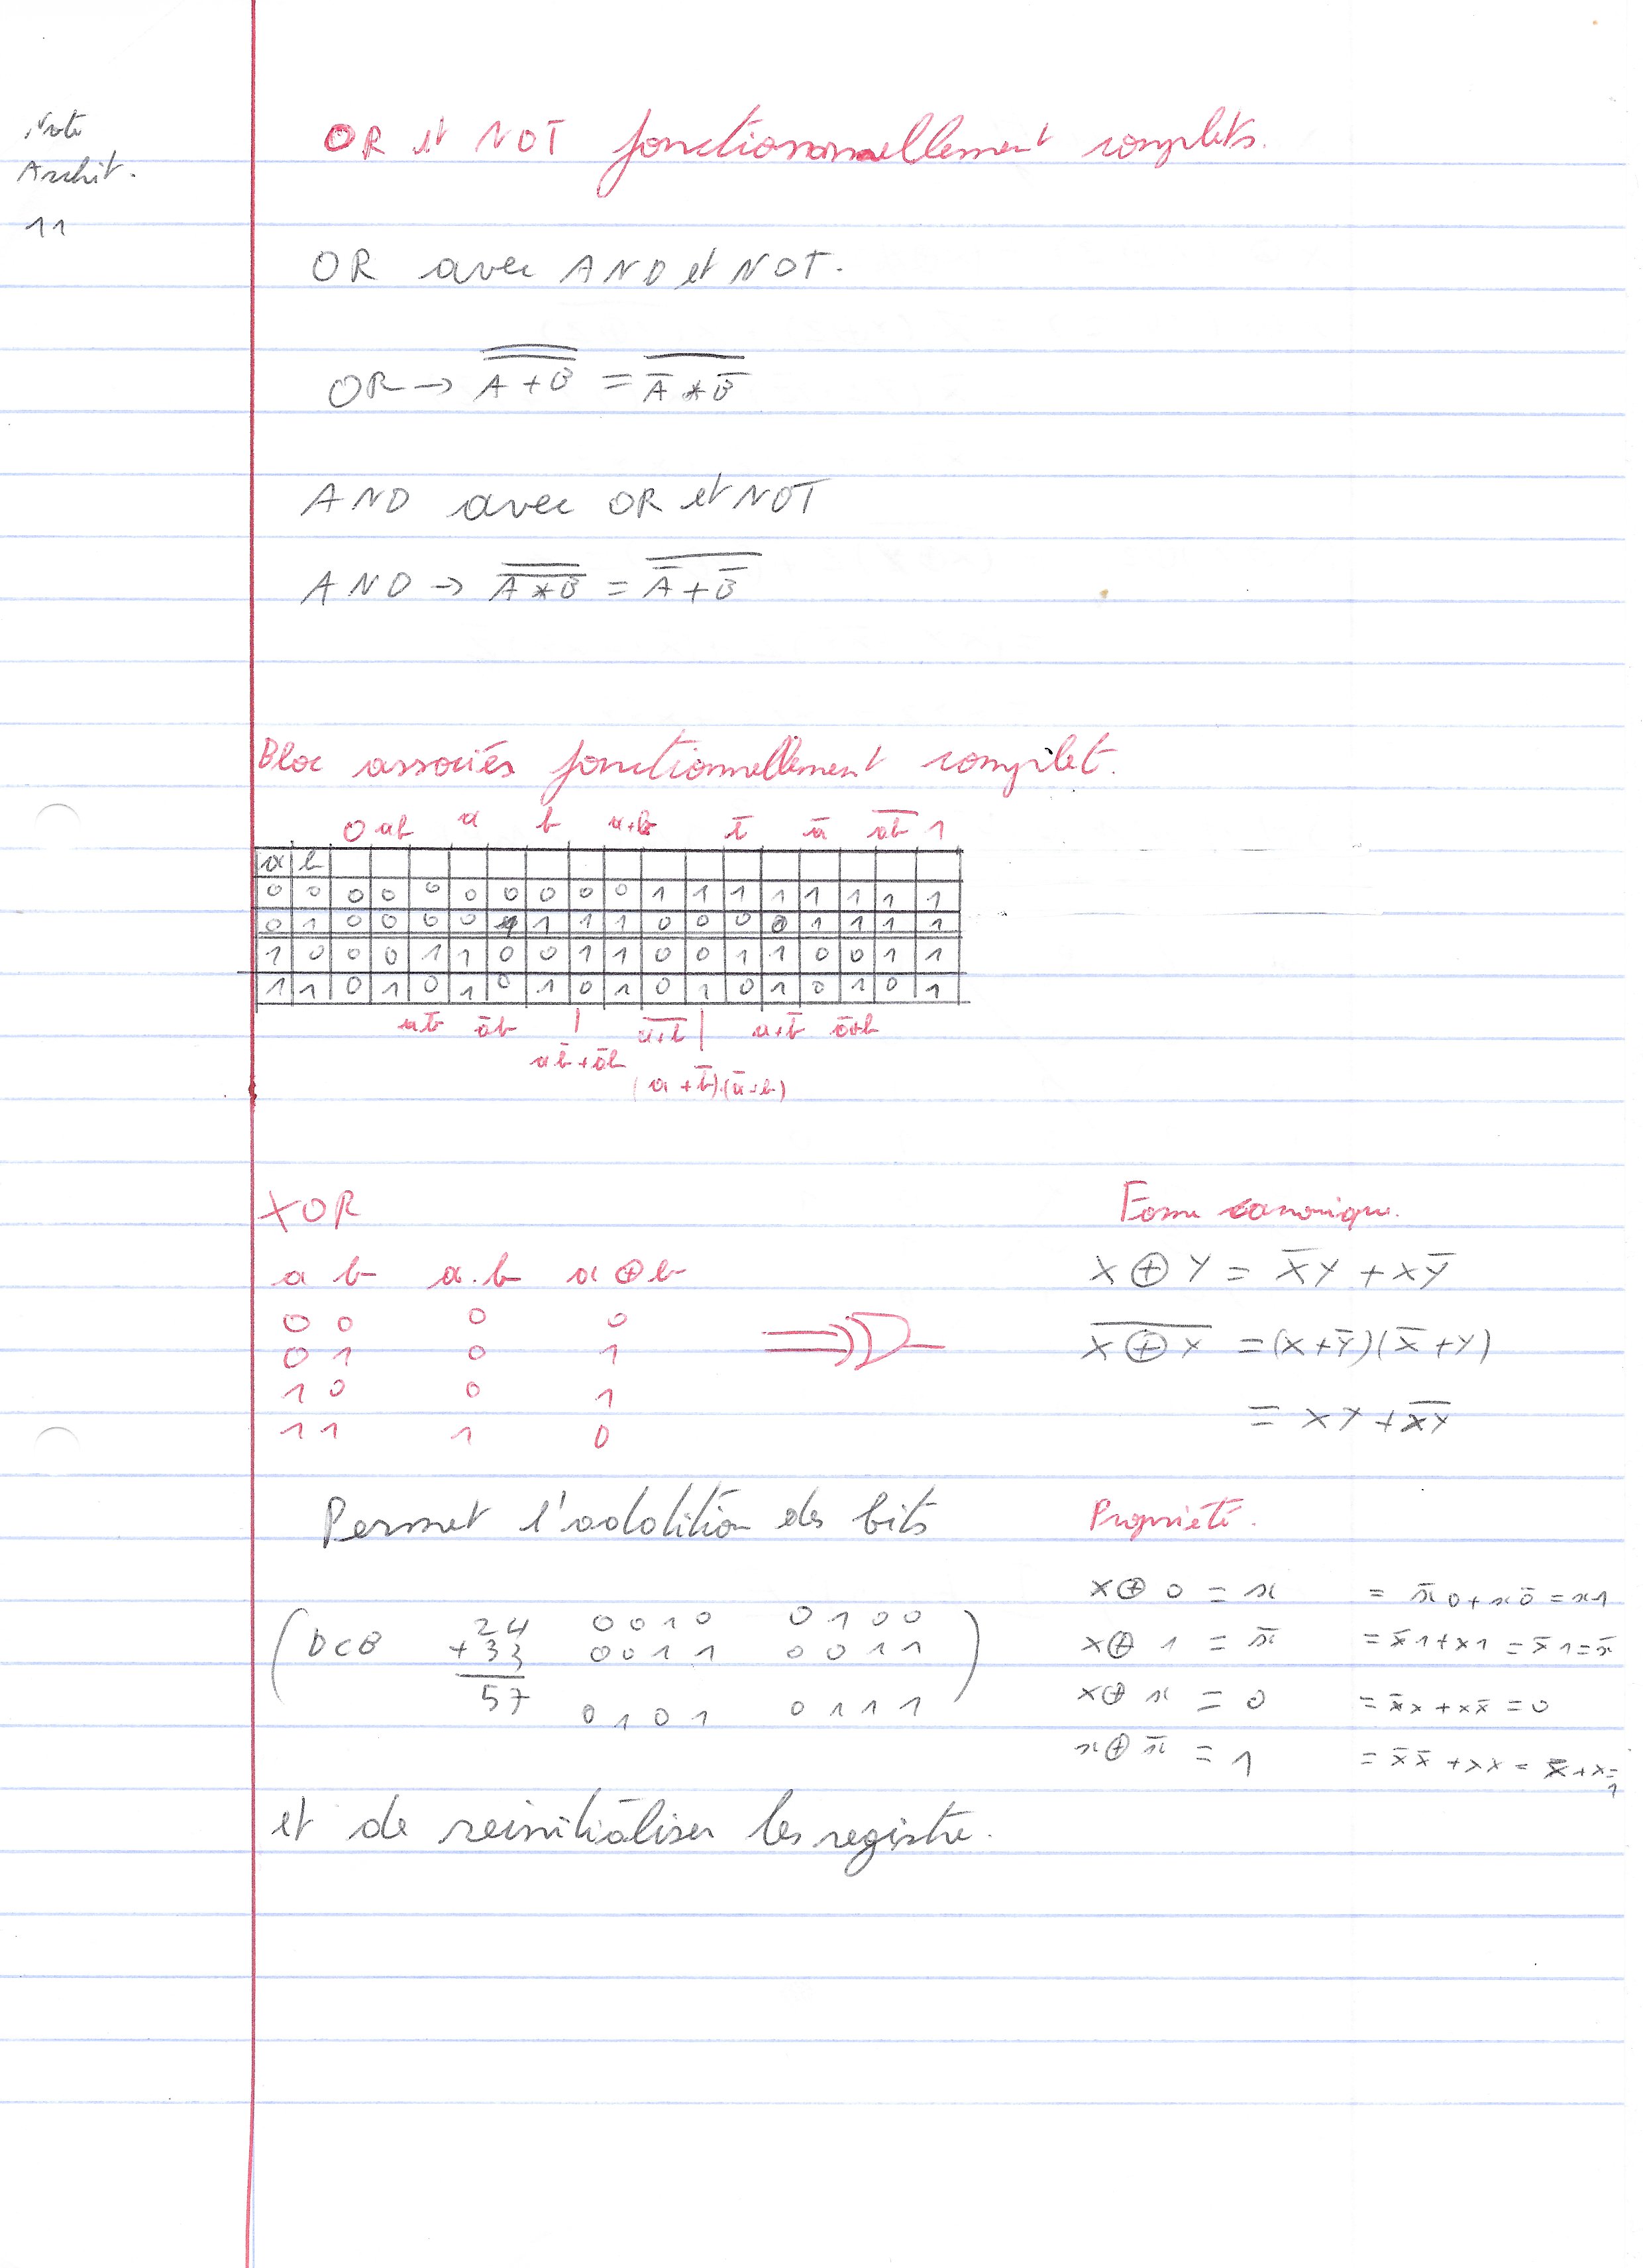 Note
Archit.
11
OR et NOT fonctionnellement complets.
OR avec AND et NOT.
OR → A̿ ̿+̿ ̿B̿ = \overline{A̅ * B̅}
AND avec OR et NOT
AND → A̿ ̿*̿ ̿B̿ = \overline{A̅ + B̅}
Bloc associés fonctionnellement complet.
0 ab a b a+b b̅ a̅ \overline{ab} 1
a b
0 0 0 0 0 0 0 0 0 0 1 1 1 1 1 1 1 1
0 1 0 0 0 0 1 1 1 1 0 0 0 0 1 1 1 1
1 0 0 0 1 1 0 0 1 1 0 0 1 1 0 0 1 1
1 1 0 1 0 1 0 1 0 1 0 1 0 1 0 1 0 1
ab̅ a̅b | \overline{a+b} | a+b̅ a̅+b
ab̅ + a̅b
(a + b̅).(a̅+b)
XOR
a b a.b a ⊕ b
0 0 0 0
0 1 0 1
1 0 0 1
1 1 1 0
Forme canonique.
X ⊕ Y = X̅Y + XY̅
\overline{X ⊕ Y} = (X+Y̅)(X̅+Y)
= XY + \overline{XY}
Permet l'addition des bits
(DCB 24 0010 0100
+33 0011 0011)
57 0101 0111
Propriété.
x ⊕ 0 = x = x̅0 + x0̅ = x1
x ⊕ 1 = x̅ = x̅1 + x1 = x̅1 = x̅
x ⊕ x = 0 = x̅x + xx̅ = 0
x ⊕ x̅ = 1 = x̅x̅ + xx = x̅ + x = 1
et de réinitialiser les registre.